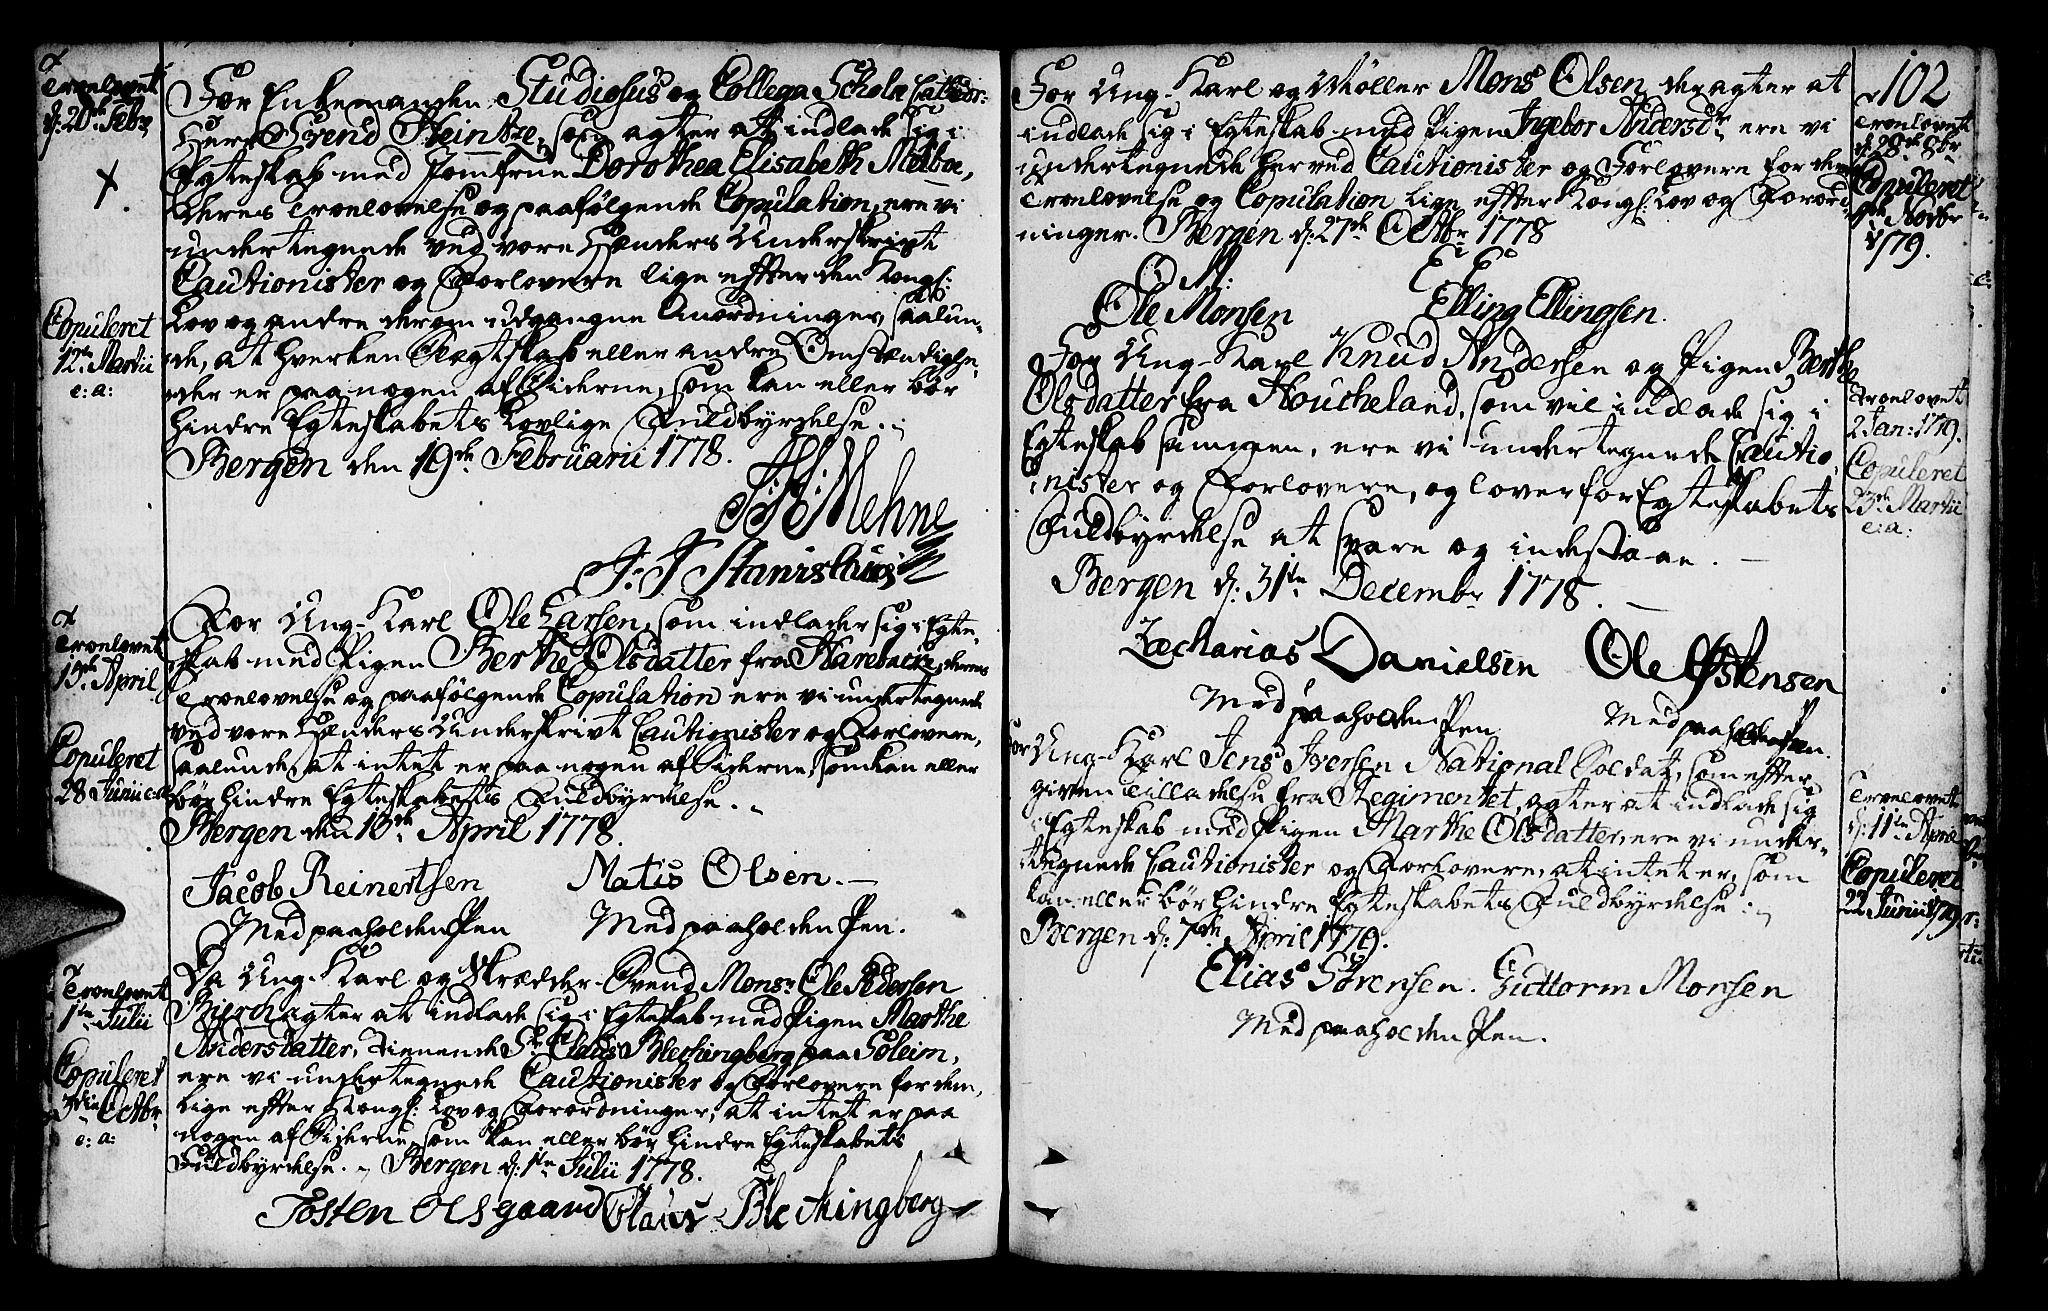 Troelovet
d: 20de Febr
For Enkemanden, Studiosus og Collega Scholæ Cathedr:
Herr Svend Heintze, som agter at indlade sig i
Egteskab med Jomfrue Dorothea Elisabeth Meltzoe,
deres Troelovelse og paafølgende Copulation, ere vi
undertegnede ved vore Hænders Underskrivt
Cautionister og Forlovere lige effter den Kongl:
Lov og andre derom udgangne Anordninger, saalun-
de, at hverken Slægtskab eller andre Omstændighe-
der er paa nogen af Siderne, som kan eller bør
hindre Egteskabets Lovlige Fuldbyrdelse.
Bergen den 19de Februarii 1778.
Copuleret
12te Martii
e: a:
Mehne
J: J Stanislaus
Troelovet
19de April
For Ung-Karl Ole Larsen, som indlader sig i Egte-
skab med Pigen Berthe Olsdatter fra Harebacke, deres
Troelovelse og paafølgende Copulation ere vi undertegnede
ved vore Hænders Underskrivt Cautionister og Forlovere,
saalunde, at intet er paa nogen af Siderne, som kan eller
bør hindre Egteskabetts Fuldbyrdelse.
Bergen den 18de April 1778.
Copuleret
28 Junii e: a:
Jacob Reinertsen Matis Olsen.
Med paaholden Pen Med paaholden Pen.
Troelovet
1te Julii
Da Ung-Karl og Skrædder-Svend Monsr Ole Pedersen
Bierch agter at indlade sig i Egteskab med Pigen Marthe
Andersdatter, tienende Sr Claus Blechingberg paa Soleim,
ere vi undertegnede Cautionister og Forlovere for dem,
lige effter Kongl: Lov og Forordninger, at intet er paa
nogen af Siderne, som kan eller bør hindre Egteskabets
Fuldbyrdelse. Bergen d: 1te Julii 1778.
Copuleret
Octbr
e: a:
Josten Olsgaard Claus Blechingberg
102
For Ung-Karl og Møller Mons Olsen, der agter at
indlade sig i Egteskab med Pigen Ingebor Andersdtr ere vi
undertegnede herved Cautionister og Forlovere for deres
Troelovelse og Copulation lige effter Kongl: Lov og Forord-
ninger. Bergen d: 27de Octbr 1778
Troelovet
d: 28de 8br
Copuleret
Novbr
1779.
O M: E E
Ole Monsen Elling Ellingsen.
For Ung-Karl Knud Andersen og Pigen Berthe
Olsdatter fra Houcheland, som vil indlade sig i
Egteskab sammen, ere vi undertegnede Cautio-
nister og Forlovere, og lover for Egteskabets
Fuldbyrdelse at svare og indestaae.
Bergen d: 31te Decembr 1778.
Troelovet
2 Jan: 1779.
Copuleret
23de Martii
e: a:
Zacharias Danielsen Ole Østensen
Med paaholden Pen Med paaholden Pen.
For Ung-Karl Jens Iversen National Soldat, som effter
given Tilladelse fra Regimentet, agter at indlade sig
i Egteskab med Pigen Marthe Olsdatter, ere vi under-
tegnede Cautionister og Forlovere, at intet er, som
kan eller bør hindre Egteskabets Fuldbyrdelse.
Bergen d: 7de April 1779.
Troelovet
d: 11te April
Copuleret
22 Junii 1779.
Elias Sørensen. Guttorm Monsen
Med paaholden Pen.